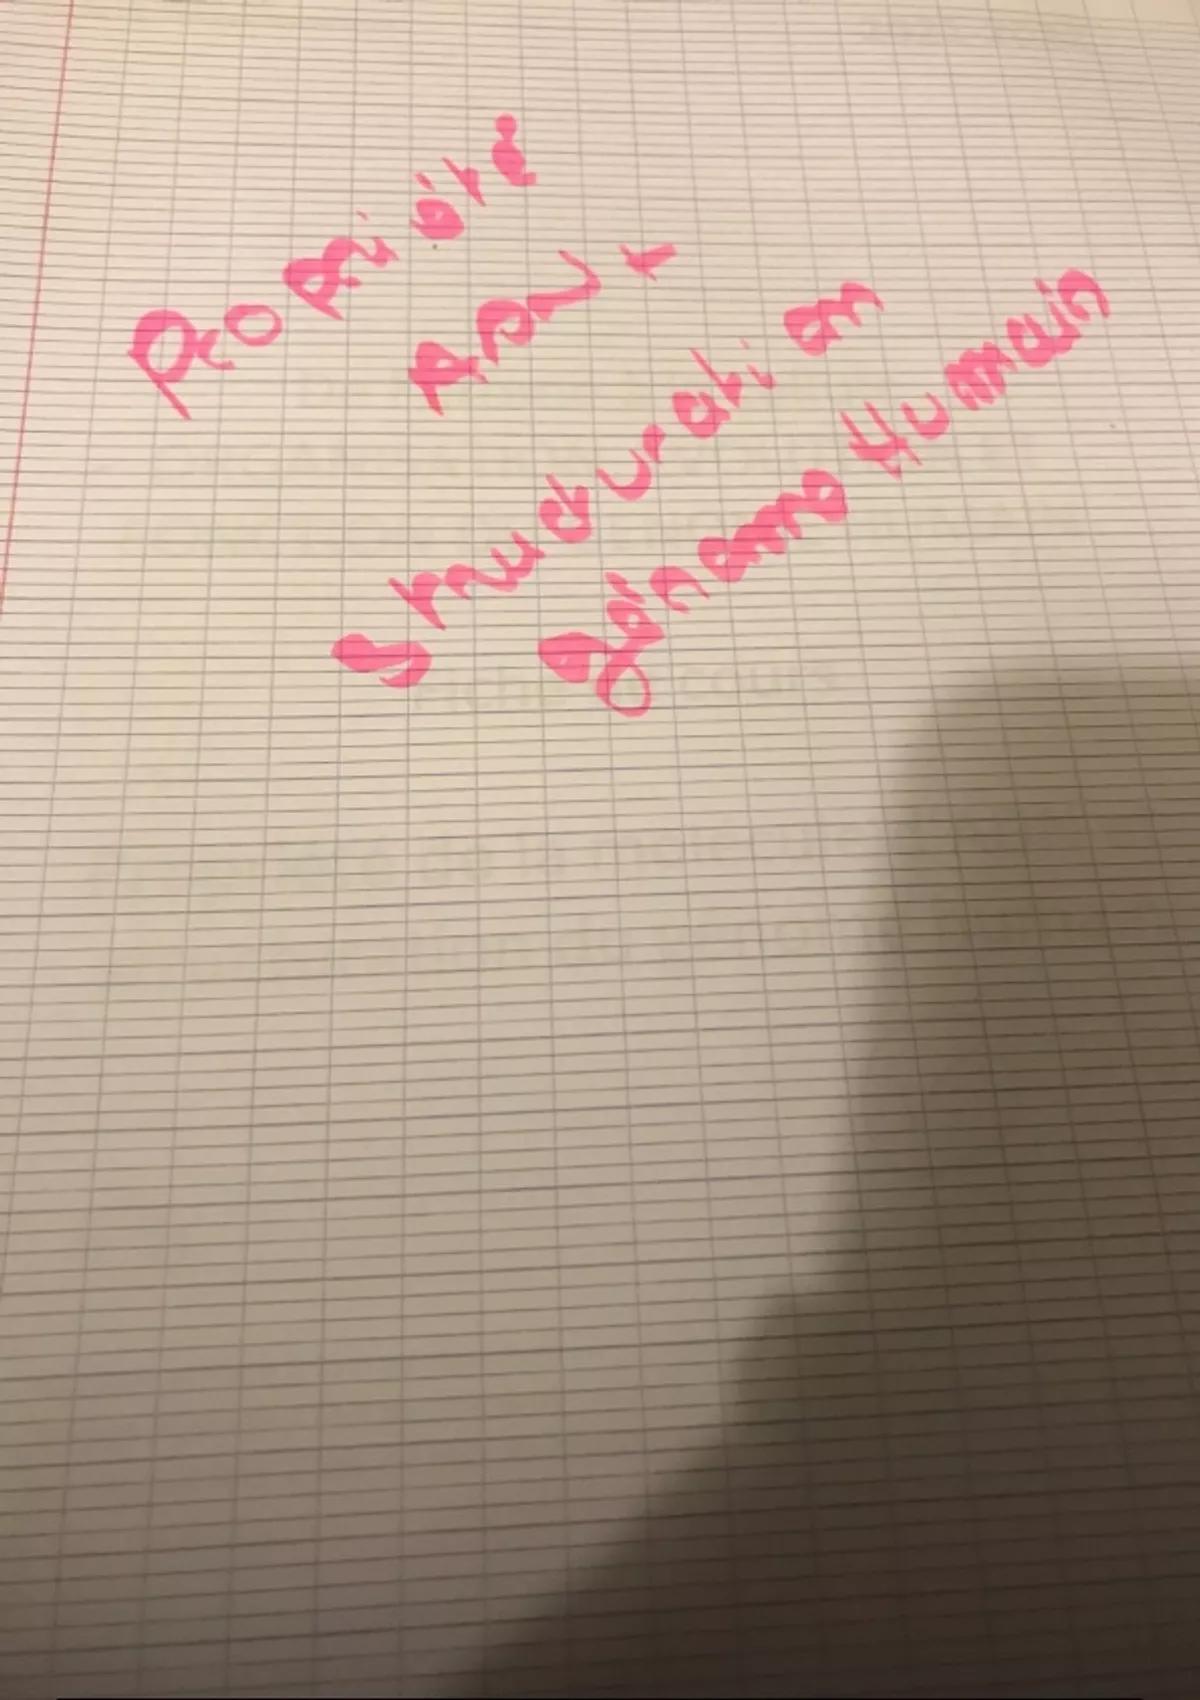 Propriété
ADN +
structuration
génome Humain